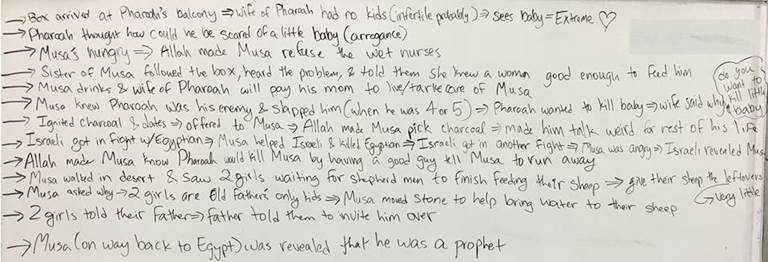 → Box arrived at Pharoah's balcony ⇒ wife of Pharoah had no kids (infertile probably) ⇒ sees baby = Extreme ♡
→ Pharoah thought how could he be scared of a little baby (arrogance)
→ Musa's hungry ⇒ Allah made Musa refuse the wet nurses
→ Sister of Musa followed the box, heard the problem, & told them she knew a woman good enough to feed him
→ Musa drinks & wife of Pharoah will pay his mom to live/take care of Musa
→ Musa knew Pharoah was his enemy & slapped him (when he was 4 or 5) ⇒ Pharoah wanted to kill baby ⇒ wife said why
do you want to kill little baby
→ Ignited charcoal & dates ⇒ offered to Musa ⇒ Allah made Musa pick charcoal ⇒ made him talk weird for rest of his life
→ Israeli got in fight w/Egyptian ⇒ Musa helped Israeli & killed Egyptian ⇒ Israeli got in another fight ⇒ Musa was angry ⇒ Israeli revealed Musa
→ Allah made Musa know Pharoah would kill Musa by having a good guy tell Musa to run away
→ Musa walked in desert & saw 2 girls waiting for shepherd men to finish feeding their sheep ⇒ give their sheep the leftovers
→ very little
→ Musa asked why ⇒ 2 girls are old father's only kids ⇒ Musa moved stone to help bring water to their sheep
→ 2 girls told their father ⇒ father told them to invite him over
→ Musa (on way back to Egypt) was revealed that he was a prophet